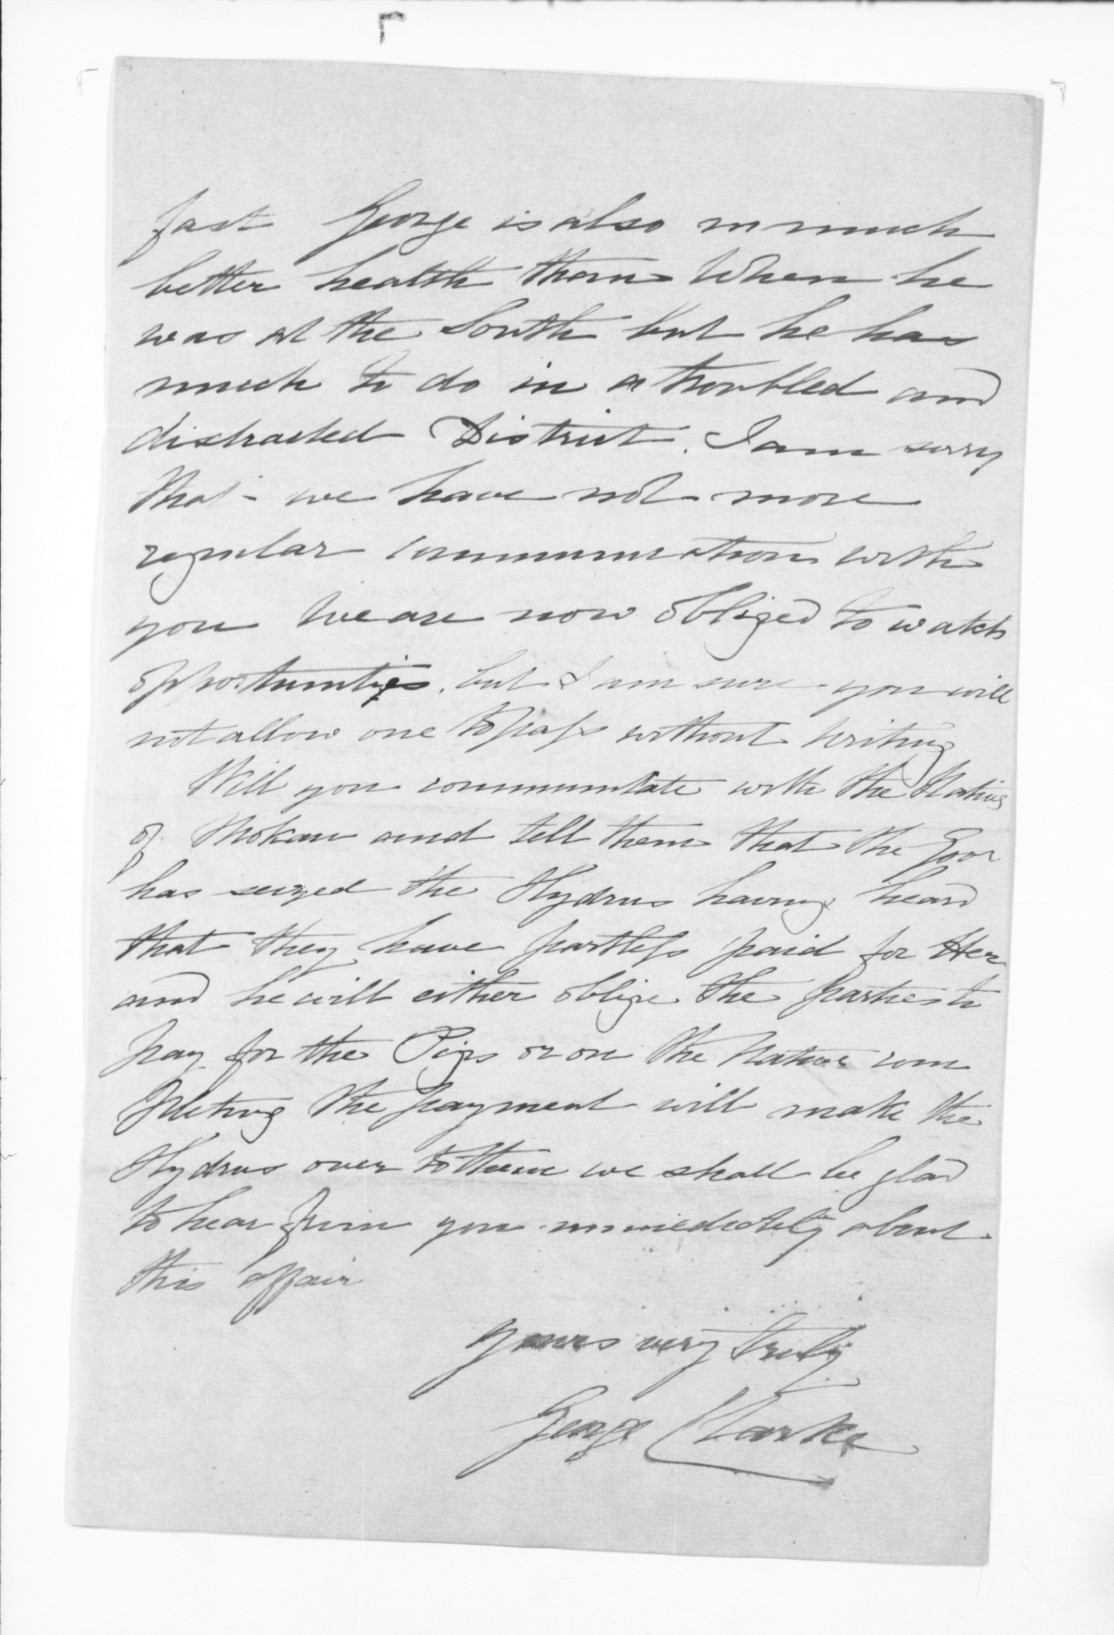 fast George is also in much
better health than When he
was at the South but he has
much to do in a troubled and
distracted District. I am sorry
that we have not more
regular communication with
you We are now obliged to watch
opportunities. but I am sure you will
not allow one to pass without writing
Will you communicate with the Natives
of Mokau and tell them that the Govr
has seized the Hydrus having heard
that they have partly paid for Her
and he will either oblige the parties to
pay for the Pigs or on the Native com
pleting the payment will make the
Hydrus over to them we shall be glad
to hear from you immediately about
this affair
yours very truly
George Clarke